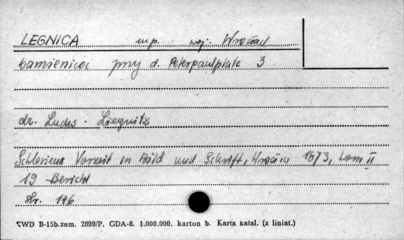 LEGNICA m.p. woj. Wrocław
kamienica przy d. Peterpaulplatz 3
dr. Luchs. Liegnitz
Schlesiens Vorzeit in Bild und Schrift, Wrocław 1873, tom II
19 Bericht
str. 146
ŻWD B-15b.zam. 2899/P. GDA-8. 1.000.000. karton b. Karta katal. (z liniat.)